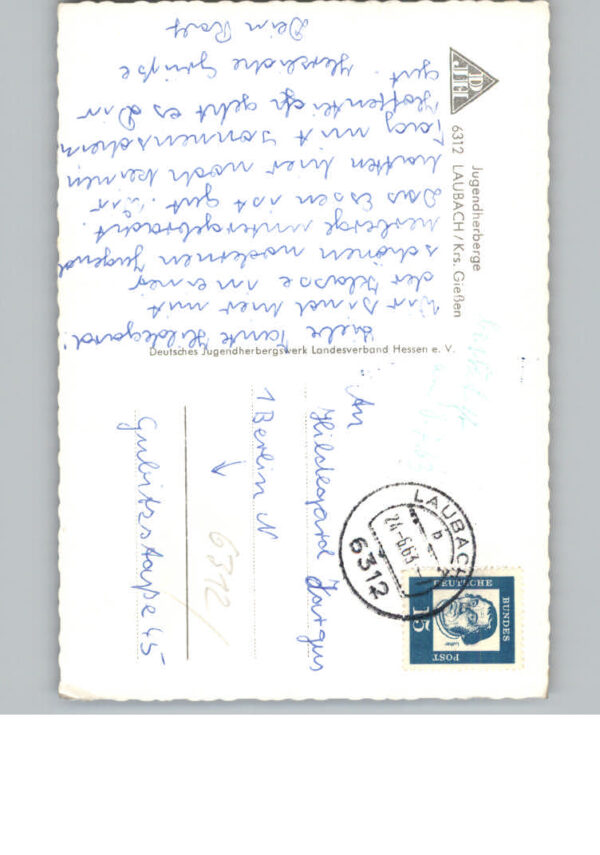 DJH
Jugendherberge
6312 LAUBACH / Krs. Gießen
Liebe Tante Hildegard!
Wir sind hier mit
der Klasse in einer
schönen modernen Jugend
herberge untergebracht.
Das Essen ist gut. Wir
hatten hier noch keinen
Tag mit Sonnenschein
Hoffentlich geht es Dir
gut. Herzliche Grüße
Dein Ralf
Deutsches Jugendherbergswerk Landesverband Hessen e. V.
An
Hildegard Jargus
1 Berlin N
Gubitzstaße 45
6312/
LAUBACH
b
24.-6.63
6312
DEUTSCHE
BUNDES
POST
15
Luther